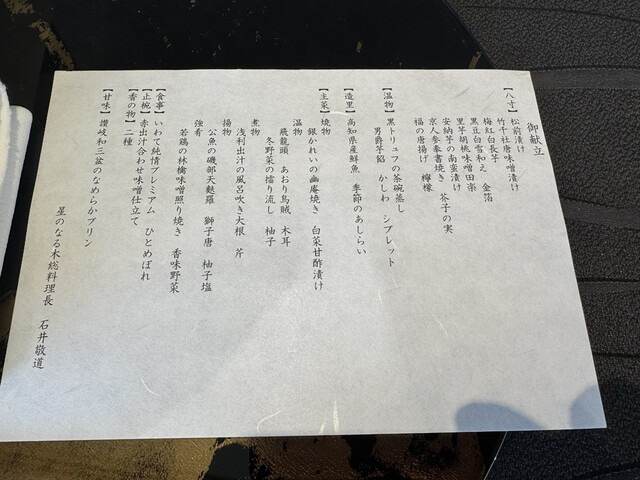 御献立
【八寸】松前漬け
竹千社唐味噌漬け
梅紅白長芋　金箔
黒豆白雪和え
里芋胡桃味噌田楽
安納芋の南蛮漬け　芥子の実
京人参奉書焼き
福の唐揚げ　檸檬
【温物】黒トリュフの茶碗蒸し
男爵芋餡　かしわ　シブレット
【造里】高知県産鮮魚　季節のあしらい
【主菜】焼物
銀かれいの幽庵焼き　白菜甘酢漬け
温物
飛龍頭　あおり烏賊　木耳
冬野菜の擂り流し　柚子
煮物
浅利出汁の風呂吹き大根　芹
揚物
公魚の磯部天麩羅　獅子唐　柚子塩
強肴
若鶏の林檎味噌照り焼き　香味野菜
【食事】いわて純情プレミアム　ひとめぼれ
【止椀】赤出汁合わせ味噌仕立て
【香の物】二種
【甘味】讃岐和三盆のなめらかプリン
星のなる木総料理長　石井敬道